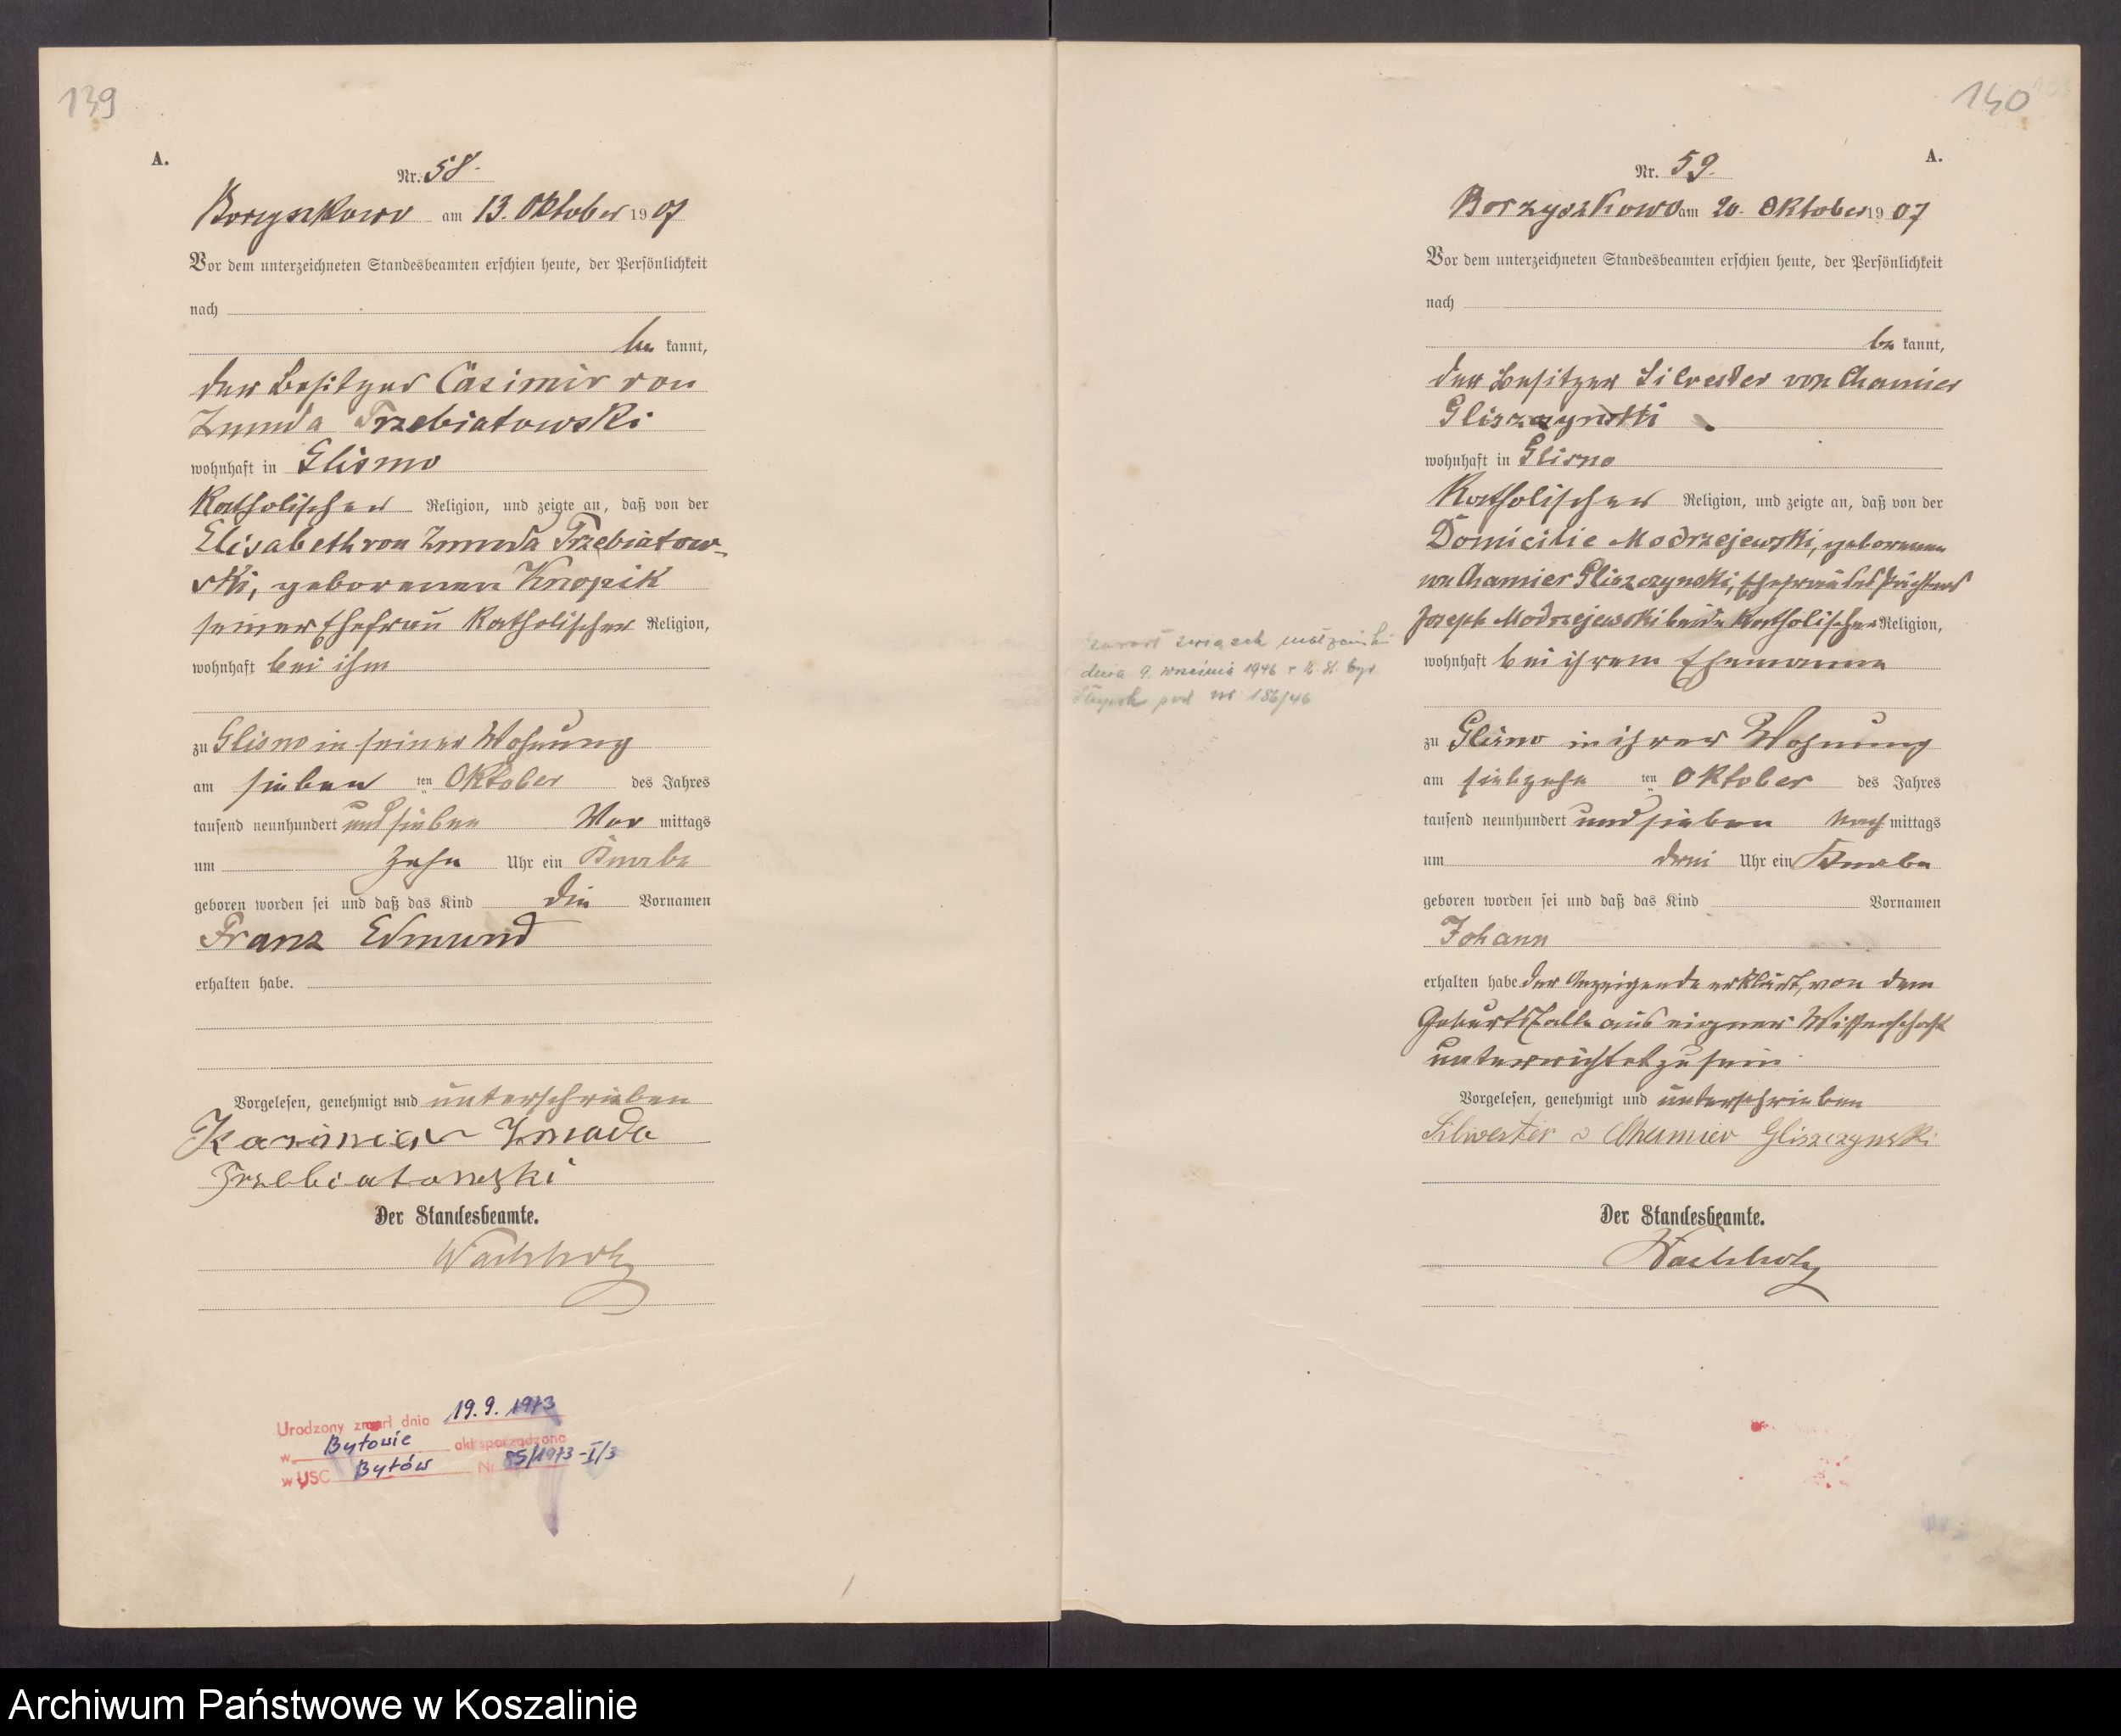 139
A.
Nr. 58.
Borzyszkowo am 13. Oktober 1907
Vor dem unterzeichneten Standesbeamten erschien heute, der Persönlichkeit
nach
be kannt,
der Besitzer Casimir von
Zmuda Trzebiatowski
wohnhaft in Glisno
Katholischer Religion, und zeigte an, daß von der
Elisabeth von Zmuda Trzebiatow-
ski, geborenen Knopik
seiner Ehefrau Katholischer Religion,
wohnhaft bei ihm
zu Glisno in seiner Wohnung
am sieben ten Oktober des Jahres
tausend neunhundert und sieben Vor mittags
um zehn Uhr ein Knabe
geboren worden sei und daß das Kind die Vornamen
Franz Edmund
erhalten habe.
Vorgelesen, genehmigt und unterschrieben
Kazimier Zmuda
Trzebiatowski
Der Standesbeamte.
Wachholz
Urodzony zmarł dnia 19.9.1973
w Bytowie akt sporządzono
w USC Bytów Nr 85/1973-I/3
140
A.
Nr. 59.
Borzyszkowo am 20. Oktober 1907
Vor dem unterzeichneten Standesbeamten erschien heute, der Persönlichkeit
nach
be kannt,
der Besitzer Silvester von Chamier
Gliszczynski
wohnhaft in Glisno
Katholischer Religion, und zeigte an, daß von der
Domicilie Modrzejewski, geborenen
von Chamier Gliszczynski, Ehefrau des Pächters
Joseph Modrzejewski beide Katholischer Religion,
wohnhaft bei ihrem Ehemanne
zu Glisno in ihrer Wohnung
am siebzehn ten Oktober des Jahres
tausend neunhundert und sieben Nach mittags
um drei Uhr ein Knabe
geboren worden sei und daß das Kind Vornamen
Johann
erhalten habe. Der Anzeigende erklärt, von dem
Geburtsfalle aus eigner Wissenschaft
unterrichtet zu sein.
Vorgelesen, genehmigt und unterschrieben
Silwester v Chamier Gliszczynski
Der Standesbeamte.
Wachholz
zawarł związek małżeński
dnia 9. września 1946 r
pod nr 186/46
Archiwum Państwowe w Koszalinie